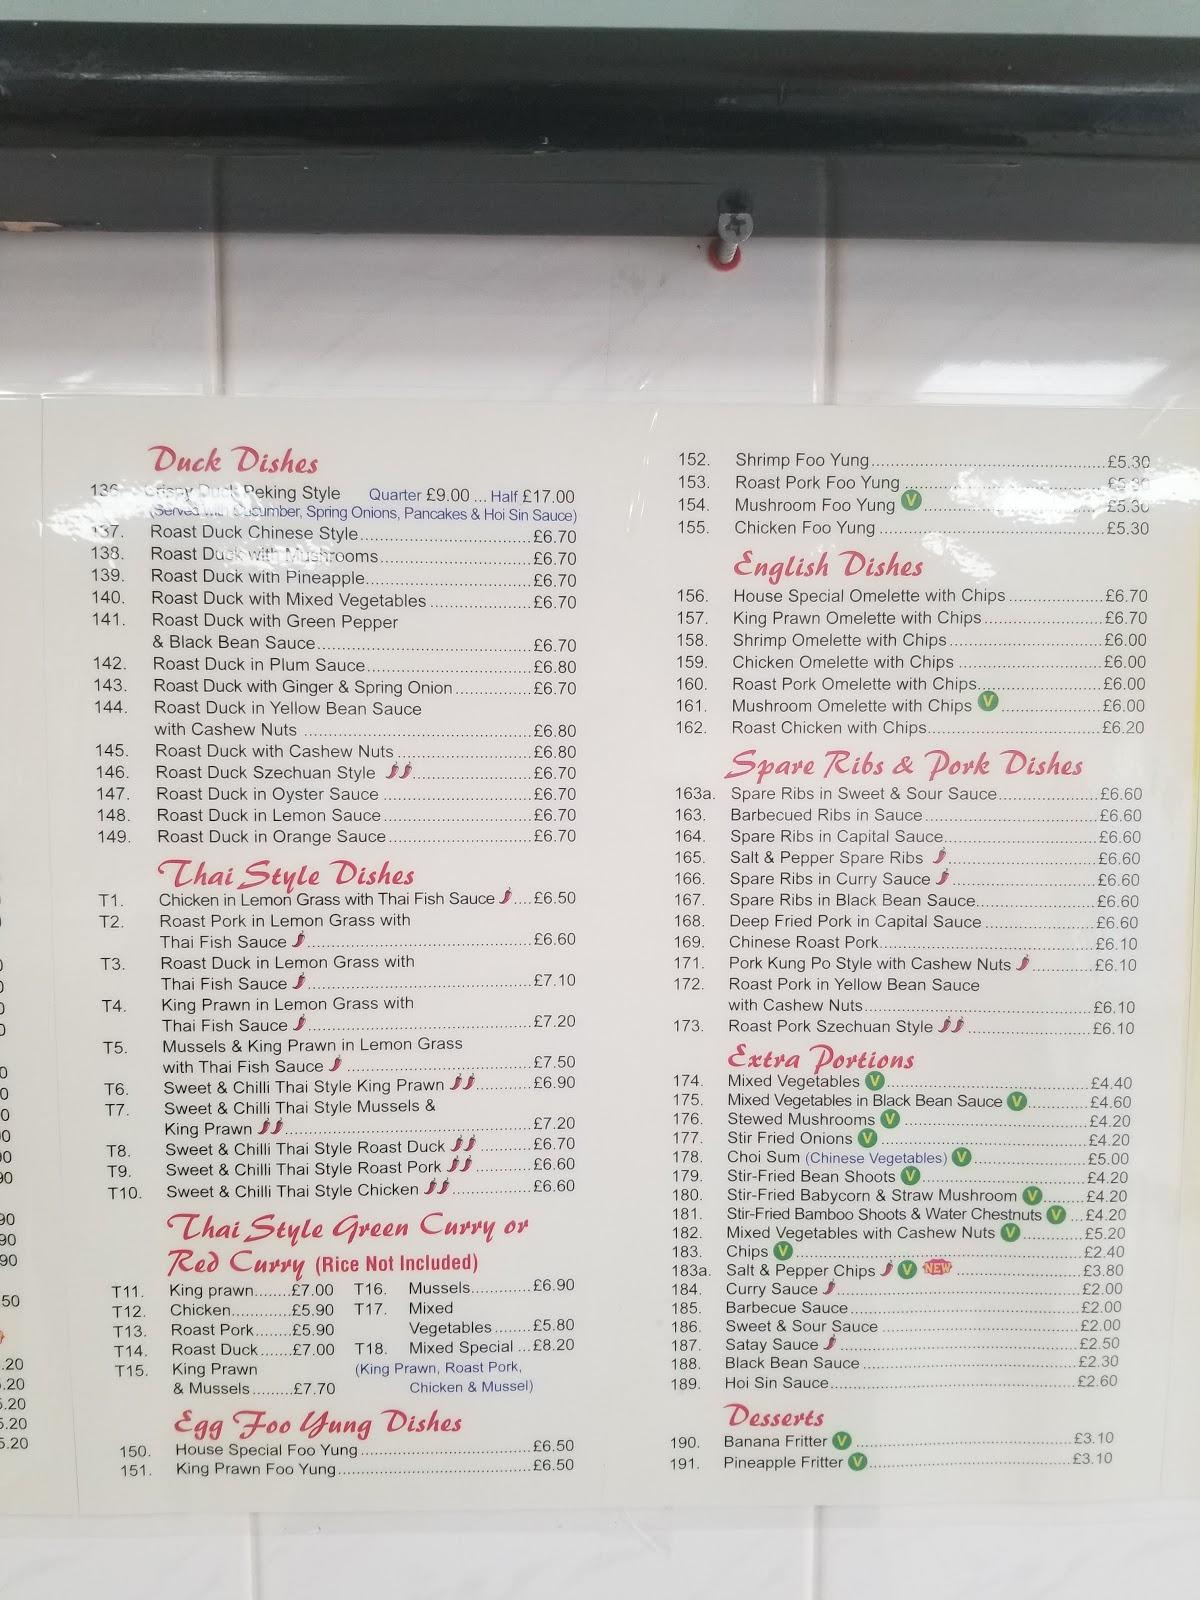 Duck Dishes
136. Crispy Duck Peking Style Quarter £9.00 ... Half £17.00
(Served with Cucumber, Spring Onions, Pancakes & Hoi Sin Sauce)
137. Roast Duck Chinese Style £6.70
138. Roast Duck with Mushrooms £6.70
139. Roast Duck with Pineapple £6.70
140. Roast Duck with Mixed Vegetables £6.70
141. Roast Duck with Green Pepper
& Black Bean Sauce £6.70
142. Roast Duck in Plum Sauce £6.80
143. Roast Duck with Ginger & Spring Onion £6.70
144. Roast Duck in Yellow Bean Sauce
with Cashew Nuts £6.80
145. Roast Duck with Cashew Nuts £6.80
146. Roast Duck Szechuan Style £6.70
147. Roast Duck in Oyster Sauce £6.70
148. Roast Duck in Lemon Sauce £6.70
149. Roast Duck in Orange Sauce £6.70
Thai Style Dishes
T1. Chicken in Lemon Grass with Thai Fish Sauce £6.50
T2. Roast Pork in Lemon Grass with
Thai Fish Sauce £6.60
T3. Roast Duck in Lemon Grass with
Thai Fish Sauce £7.10
T4. King Prawn in Lemon Grass with
Thai Fish Sauce £7.20
T5. Mussels & King Prawn in Lemon Grass
with Thai Fish Sauce £7.50
T6. Sweet & Chilli Thai Style King Prawn £6.90
T7. Sweet & Chilli Thai Style Mussels &
King Prawn £7.20
T8. Sweet & Chilli Thai Style Roast Duck £6.70
T9. Sweet & Chilli Thai Style Roast Pork £6.60
T10. Sweet & Chilli Thai Style Chicken £6.60
Thai Style Green Curry or
Red Curry (Rice Not Included)
T11. King prawn £7.00
T12. Chicken £5.90
T13. Roast Pork £5.90
T14. Roast Duck £7.00
T15. King Prawn
& Mussels £7.70
T16. Mussels £6.90
T17. Mixed
Vegetables £5.80
T18. Mixed Special £8.20
(King Prawn, Roast Pork,
Chicken & Mussel)
Egg Foo Yung Dishes
150. House Special Foo Yung £6.50
151. King Prawn Foo Yung £6.50
152. Shrimp Foo Yung £5.30
153. Roast Pork Foo Yung £5.30
154. Mushroom Foo Yung V £5.30
155. Chicken Foo Yung £5.30
English Dishes
156. House Special Omelette with Chips £6.70
157. King Prawn Omelette with Chips £6.70
158. Shrimp Omelette with Chips £6.00
159. Chicken Omelette with Chips £6.00
160. Roast Pork Omelette with Chips £6.00
161. Mushroom Omelette with Chips V £6.00
162. Roast Chicken with Chips £6.20
Spare Ribs & Pork Dishes
163a. Spare Ribs in Sweet & Sour Sauce £6.60
163. Barbecued Ribs in Sauce £6.60
164. Spare Ribs in Capital Sauce £6.60
165. Salt & Pepper Spare Ribs £6.60
166. Spare Ribs in Curry Sauce £6.60
167. Spare Ribs in Black Bean Sauce £6.60
168. Deep Fried Pork in Capital Sauce £6.60
169. Chinese Roast Pork £6.10
171. Pork Kung Po Style with Cashew Nuts £6.10
172. Roast Pork in Yellow Bean Sauce
with Cashew Nuts £6.10
173. Roast Pork Szechuan Style £6.10
Extra Portions
174. Mixed Vegetables V £4.40
175. Mixed Vegetables in Black Bean Sauce V £4.60
176. Stewed Mushrooms V £4.20
177. Stir Fried Onions V £4.20
178. Choi Sum (Chinese Vegetables) V £5.00
179. Stir-Fried Bean Shoots V £4.20
180. Stir-Fried Babycorn & Straw Mushroom V £4.20
181. Stir-Fried Bamboo Shoots & Water Chestnuts V £4.20
182. Mixed Vegetables with Cashew Nuts V £5.20
183. Chips V £2.40
183a. Salt & Pepper Chips V NEW £3.80
184. Curry Sauce £2.00
185. Barbecue Sauce £2.00
186. Sweet & Sour Sauce £2.00
187. Satay Sauce £2.50
188. Black Bean Sauce £2.30
189. Hoi Sin Sauce £2.60
Desserts
190. Banana Fritter V £3.10
191. Pineapple Fritter V £3.10